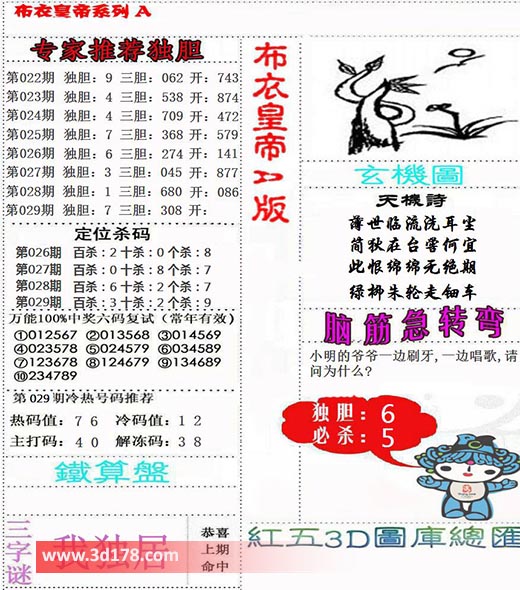 布衣皇帝系列 A
专家推荐独胆
第022期 独胆：9 三胆：062 开：743
第023期 独胆：4 三胆：538 开：874
第024期 独胆：4 三胆：709 开：472
第025期 独胆：7 三胆：368 开：579
第026期 独胆：6 三胆：274 开：141
第027期 独胆：3 三胆：045 开：877
第028期 独胆：1 三胆：680 开：086
第029期 独胆：7 三胆：308 开：
定位杀码
第026期 百杀：2 十杀：0 个杀：8
第027期 百杀：0 十杀：8 个杀：7
第028期 百杀：6 十杀：2 个杀：7
第029期 百杀：3 十杀：2 个杀：9
万能100%中奖六码复试（常年有效）
①012567 ②013568 ③014569
④023578 ⑤024579 ⑥034589
⑦123678 ⑧124679 ⑨134689
⑩234789
第 029 期冷热号码推荐
热码值：7 6 冷码值：1 2
主打码：4 0 解冻码：3 8
鐵算盤
三字谜
我独居
恭喜
上期
命中
布衣皇帝A版
玄機圖
天機詩
薄世临流洗耳尘
简狄在台喾何宜
此恨绵绵无绝期
绿柳朱轮走钿车
脑筋急转弯
小明的爷爷一边刷牙，一边唱歌，请
问为什么？
独胆：6
必杀：5
紅五3D圖庫總匯
www.3d178.com